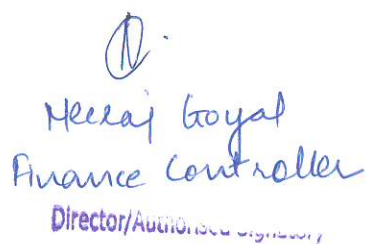 Neeraj Goyal
Finance Controller
Director/Authorised Signatory